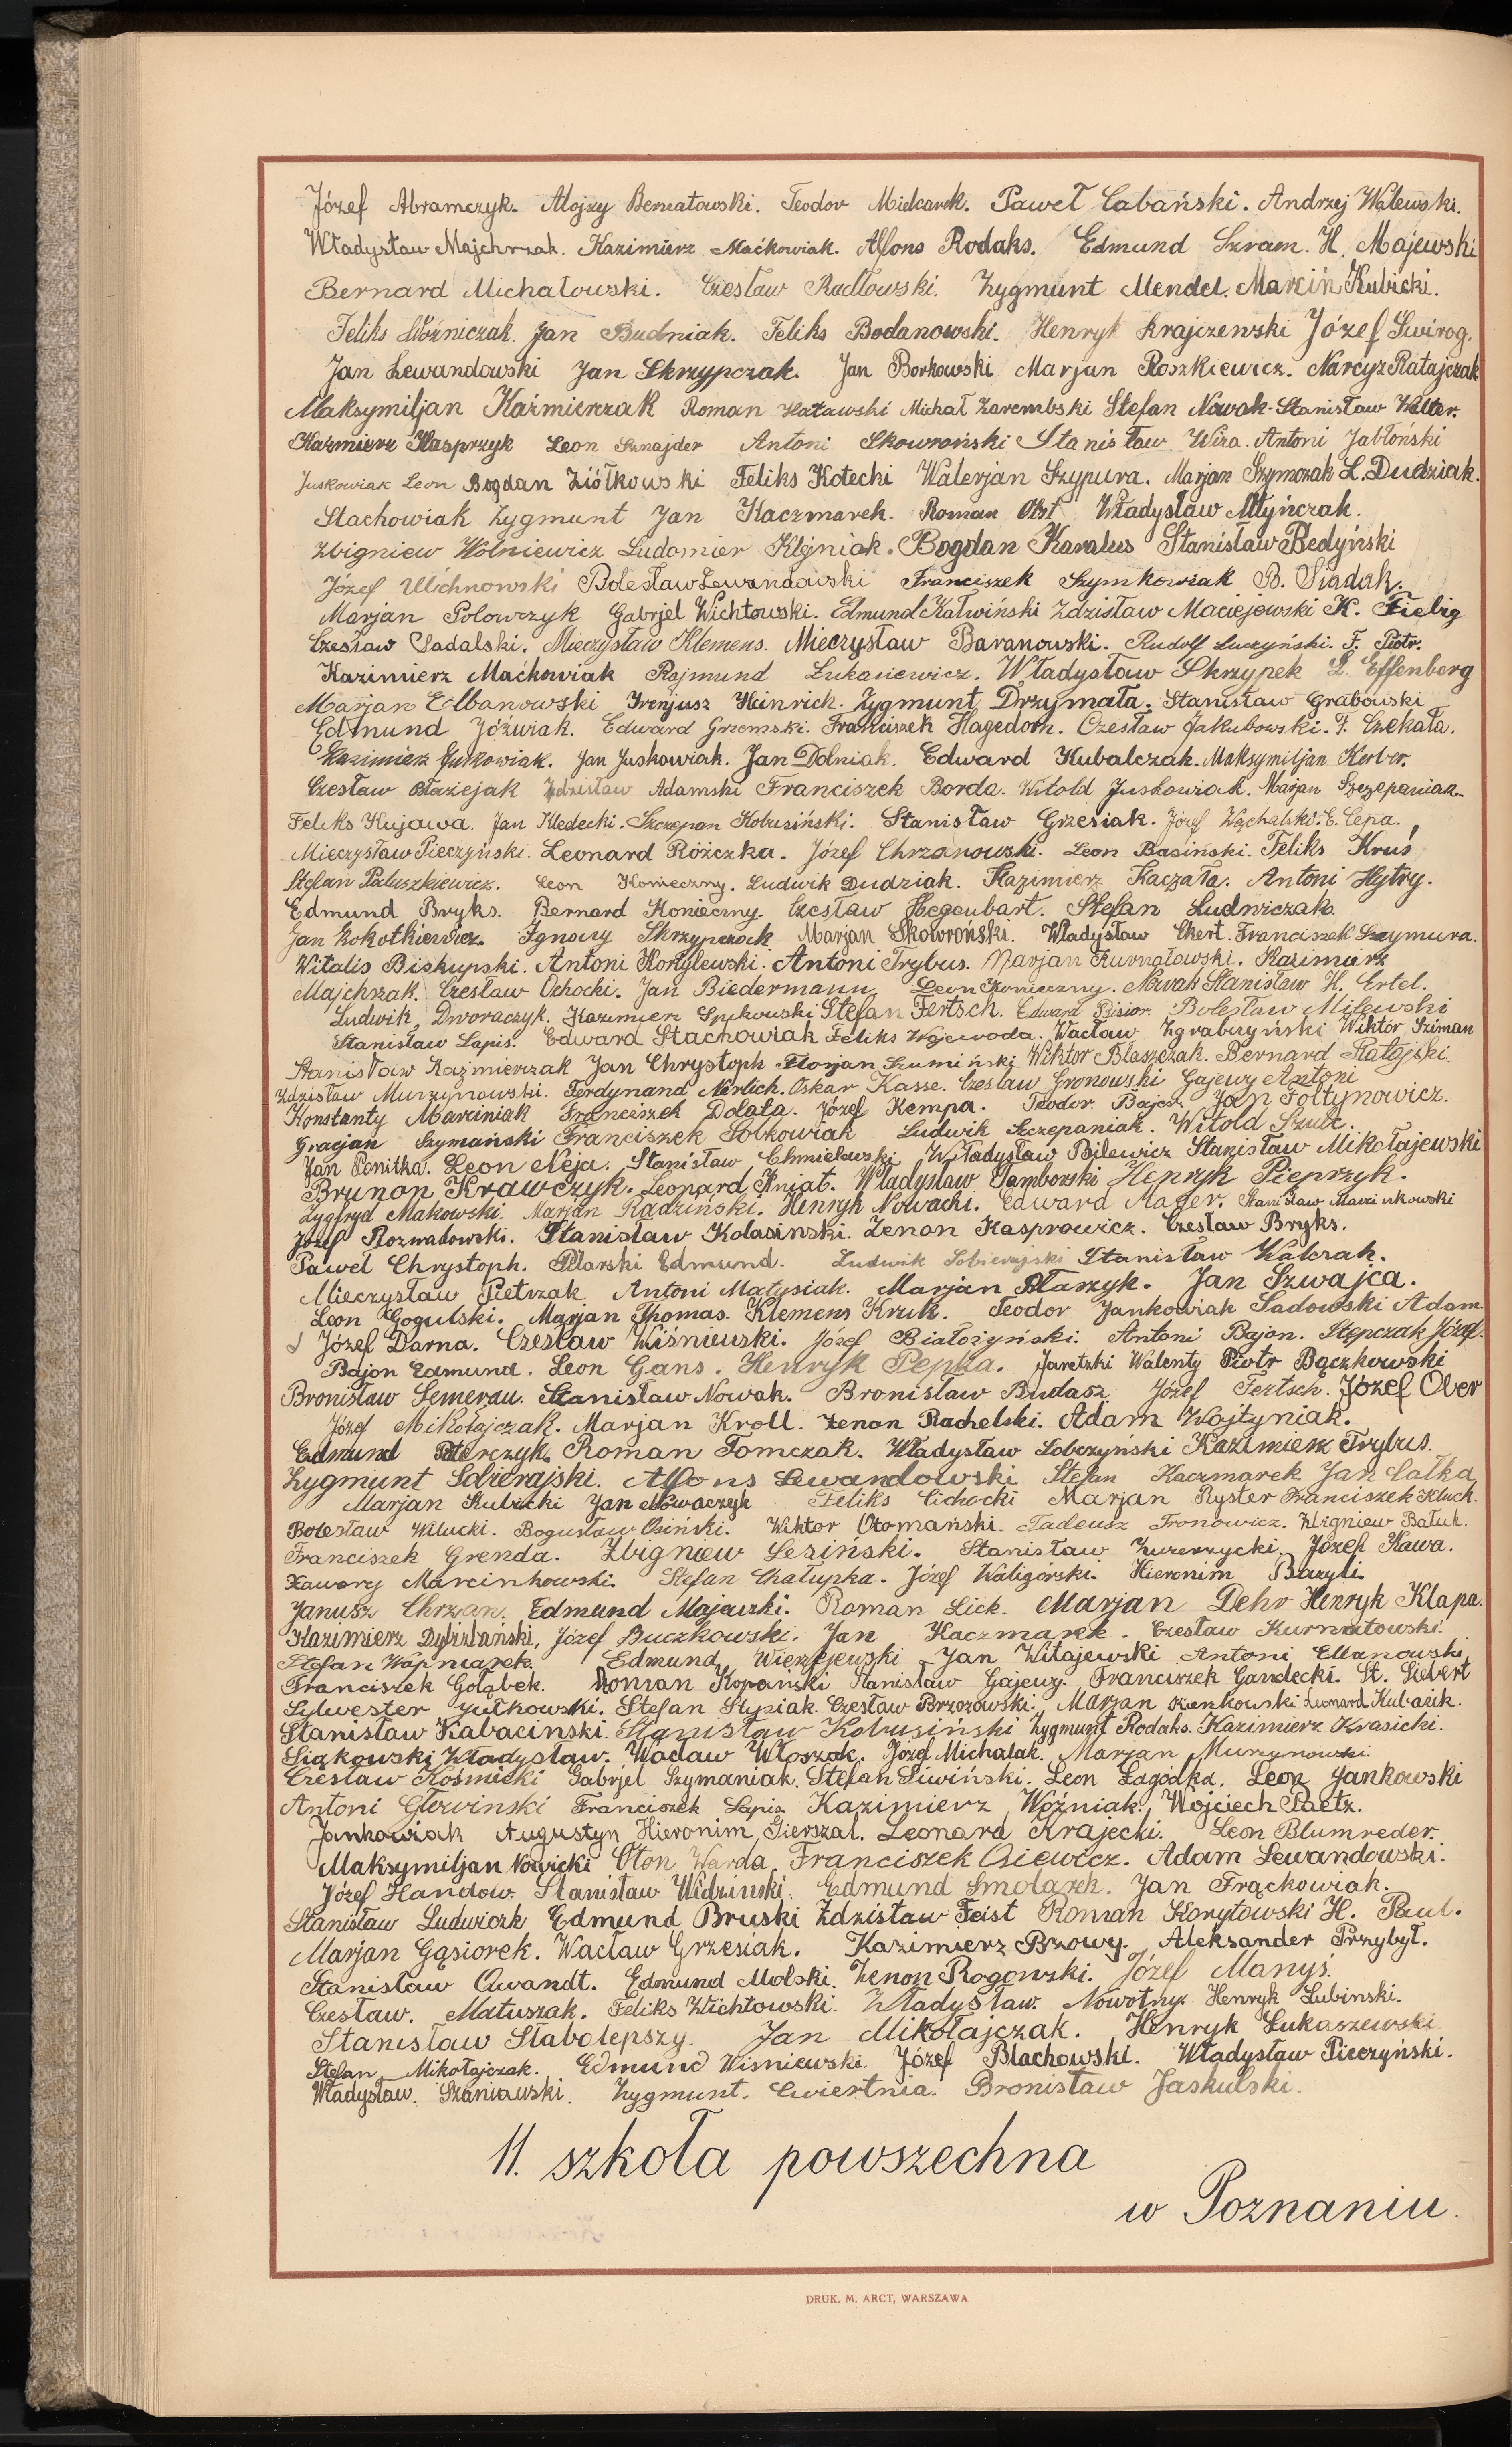 Józef Abramczyk. Alojzy Bernatowski. Teodor Mielcarek. Paweł Cabański. Andrzej Walewski.
Władysław Majchrzak. Kazimierz Maćkowiak. Alfons Rodaks. Edmund Szram. H. Majewski
Bernard Michałowski. Czesław Radłowski. Zygmunt Mendel. Marcin Kubicki.
Feliks Woźniczak. Jan Budniak. Feliks Bodanowski. Henryk Krajczewski Józef Świrog.
Jan Lewandowski Jan Skrzypczak. Jan Borkowski Marjan Roszkiewicz. Narcyz Ratajczak
Maksymiljan Kaźmierczak Roman Hatawski Michał Zarembski Stefan Nowak. Stanisław Walter.
Kazimierz Kasprzyk Leon Sznajder Antoni Skowroński Stanisław Wiza. Antoni Jabłoński
Juskowiak Leon Bogdan Ziółkowski Feliks Kotecki Walerjan Szypura. Marjan Szymczak L. Dudziak.
Stachowiak Zygmunt Jan Kaczmarek. Roman Obst Władysław Młyńczak.
Zbigniew Wolniewicz Ludomier Klejniak. Bogdan Karalus Stanisław Bedyński
Józef Ulichnowski Bolesław Lewandowski Franciszek Szymkowiak B. Siadak.
Marjan Połowczyk Gabrjel Wichtowski. Edmund Kałwiński Zdzisław Maciejewski K. Fiebig
Czesław Sadalski. Mieczysław Klemens. Mieczysław Baranowski. Rudolf Luczyński. F. Piotr.
Kazimierz Maćkowiak Rajmund Lukasiewicz. Władysław Skrzypek L. Effenberg
Marjan Elbanowski Irenjusz Heinrich. Zygmunt Drzymała. Stanisław Grabowski
Edmund Jóźwiak. Edward Grzemski. Franciszek Hagedorn. Czesław Jakubowski. F. Czekała.
Kazimierz Jurkowiak. Jan Juskowiak. Jan Dolniak. Edward Kubalczak. Maksymiljan Kerber.
Czesław Błażejak Zdzisław Adamski Franciszek Borda. Witold Juskowiak. Marjan Szczepaniak.
Feliks Kujawa. Jan Kledecki. Szczepan Kobusiński. Stanisław Grzesiak. Józef Wojchalski. E. Cepa.
Mieczysław Pieczyński. Leonard Różczka. Józef Chrzanowski. Leon Basiński. Feliks Kruś
Stefan Paluszkiewicz. Leon Konieczny. Ludwik Dudziak. Kazimierz Kaczała. Antoni Hytry.
Edmund Bryks. Bernard Konieczny. Czesław Hegenbart. Stefan Ludwiczak.
Jan Kokotkiewicz. Ignacy Skrzypczak Marjan Skowroński. Władysław Ekert. Franciszek Szymura.
Witalis Biskupski. Antoni Korylewski. Antoni Trybus. Marjan Kurnatowski. Kazimierz
Majchrzak. Czesław Ochocki. Jan Biedermann Leon Konieczny. Nowak Stanisław H. Ertel.
Ludwik Dworaczyk. Kazimierz Spikowski Stefan Fertsch. Edward Pisior. Bolesław Milewski
Stanisław Lapis. Edward Stachowiak Feliks Wojewoda. Wacław Zgrabczyński Wiktór Sziman
Stanisław Kaźmierczak Jan Chrystoph Florjan Szumiński Wiktor Błaszczak. Bernard Ratajski.
Zdzisław Murzynowski. Ferdynand Nerlich. Oskar Kasse. Czesław Gronowski Gajewy Antoni
Konstanty Marciniak Franciszek Dolata. Józef Kempa. Teodor Bajer. Jan Foltynowicz.
Gracjan Szymański Franciszek Sobkowiak Ludwik Szczepaniak. Witold Szulc.
Jan Penitka. Leon Neja. Stanisław Chmielewski Władysław Bilewicz Stanisław Mikołajewski
Brunon Krawczyk. Leopard Kniat. Władysław Tamborski Henryk Pieprzyk.
Zygfryd Makowski. Marjan Radziński. Henryk Nowacki. Edward Mager. Stanisław Marcinkowski
Józef Rozwadowski. Stanisław Kolasinski. Zenon Kasprowicz. Czesław Bryks.
Paweł Chrystoph. Pilarski Edmund. Ludwik Sobierajski Stanisław Walczak.
Mieczysław Pietrzak Antoni Matysiak. Marjan Ptaszyk. Jan Szwajca.
Leon Gogulski. Marjan Thomas. Klemens Kruk. Teodor Jankowiak Sadowski Adam.
Józef Darna. Czesław Wiśniewski. Józef Białożyński. Antoni Bajon. Stępczak Józef.
Bajon Edmund. Leon Gans. Henryk Pepka. Jaretzki Walenty Piotr Bączkowski
Bronisław Semerau. Stanisław Nowak. Bronisław Budasz Józef Fertsch. Józef Ober
Józef Mikołajczak. Marjan Kroll. Zenon Rachelski. Adam Wojtyniak.
Edmund Paterczyk. Roman Tomczak. Władysław Sobczyński Kazimierz Trybus.
Zygmunt Sobierajski. Alfons Lewandowski Stefan Kaczmarek Jan Całka
Marjan Kubicki Jan Nowaczyk Feliks Cichocki Marjan Ryster Franciszek Kluck.
Bolesław Wilucki. Bogusław Osiński. Wiktor Otomański. Tadeusz Tronowicz. Zbigniew Bałuk.
Franciszek Grenda. Zbigniew Lesiński. Stanisław Zwierzycki. Józef Kawa.
Ksawery Marcinkowski. Stefan Chałupka. Józef Waligórski. Hieronim Bazyli.
Janusz Chrzan. Edmund Majewski. Roman Lick. Marjan Dehr Henryk Klapa.
Kazimierz Dybizbański, Józef Buczkowski. Jan Kaczmarek. Czesław Kurnatowski.
Stefan Wapniarek. Edmund Wierzejewski Jan Witajewski Antoni Elbanowski
Franciszek Gołąbek. Roman Kopański Stanisław Gajewy. Franciszek Gandecki. St. Siebert
Sylwester Jutkowski. Stefan Stypiak. Czesław Brzozowski. Marjan Zienkowski Leonard Kubacik.
Stanisław Kabacinski. Stanisław Kobusiński Zygmunt Rodaks. Kazimierz Krasicki.
Siąkowski Władysław. Wacław Włoszak. Józef Michalak. Marjan Murzynowski.
Czesław Kośmicki Gabrjel Szymaniak. Stefan Siwiński. Leon Łagódka. Leon Jankowski
Antoni Głowinski Franciszek Lapis Kazimierz Woźniak. Wojciech Paetz.
Jankowiak Augustyn Hieronim Gierszal. Leonard Krajecki. Leon Blumreder.
Maksymiljan Nowicki Oton Warda Franciszek Osiewicz. Adam Lewandowski.
Józef Handow. Stanisław Widzinski. Edmund Smolarek. Jan Frąckowiak.
Stanisław Ludwiczk Edmund Bruski Zdzisław Feist Roman Korytowski H. Paul.
Marjan Gąsiorek. Wacław Grzesiak. Kazimierz Bzowy. Aleksander Przybył.
Stanisław Qwandt. Edmund Molski. Zenon Rogowski. Józef Manyś.
Czesław. Matuszak. Feliks Wichtowski. Władysław. Nowotny. Henryk Lubinski.
Stanisław Słabolepszy. Jan Mikołajczak. Henryk Łukaszewski
Stefan Mikołajczak. Edmund Wisniewski. Józef Blachowski. Władysław Pieczyński.
Władysław. Szaniawski. Zygmunt. Cwiertnia. Bronisław Jaskulski.
11. szkoła powszechna
w Poznaniu.
DRUK. M. ARCT, WARSZAWA